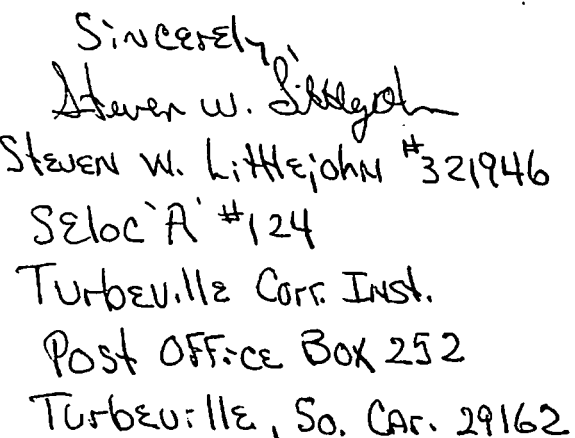 Sincerely,
Steven W. Littlejohn
Steven W. Littlejohn #321946
Seloc 'A' #124
Turbeville Corr. Inst.
Post Office Box 252
Turbeville, So. Car. 29162